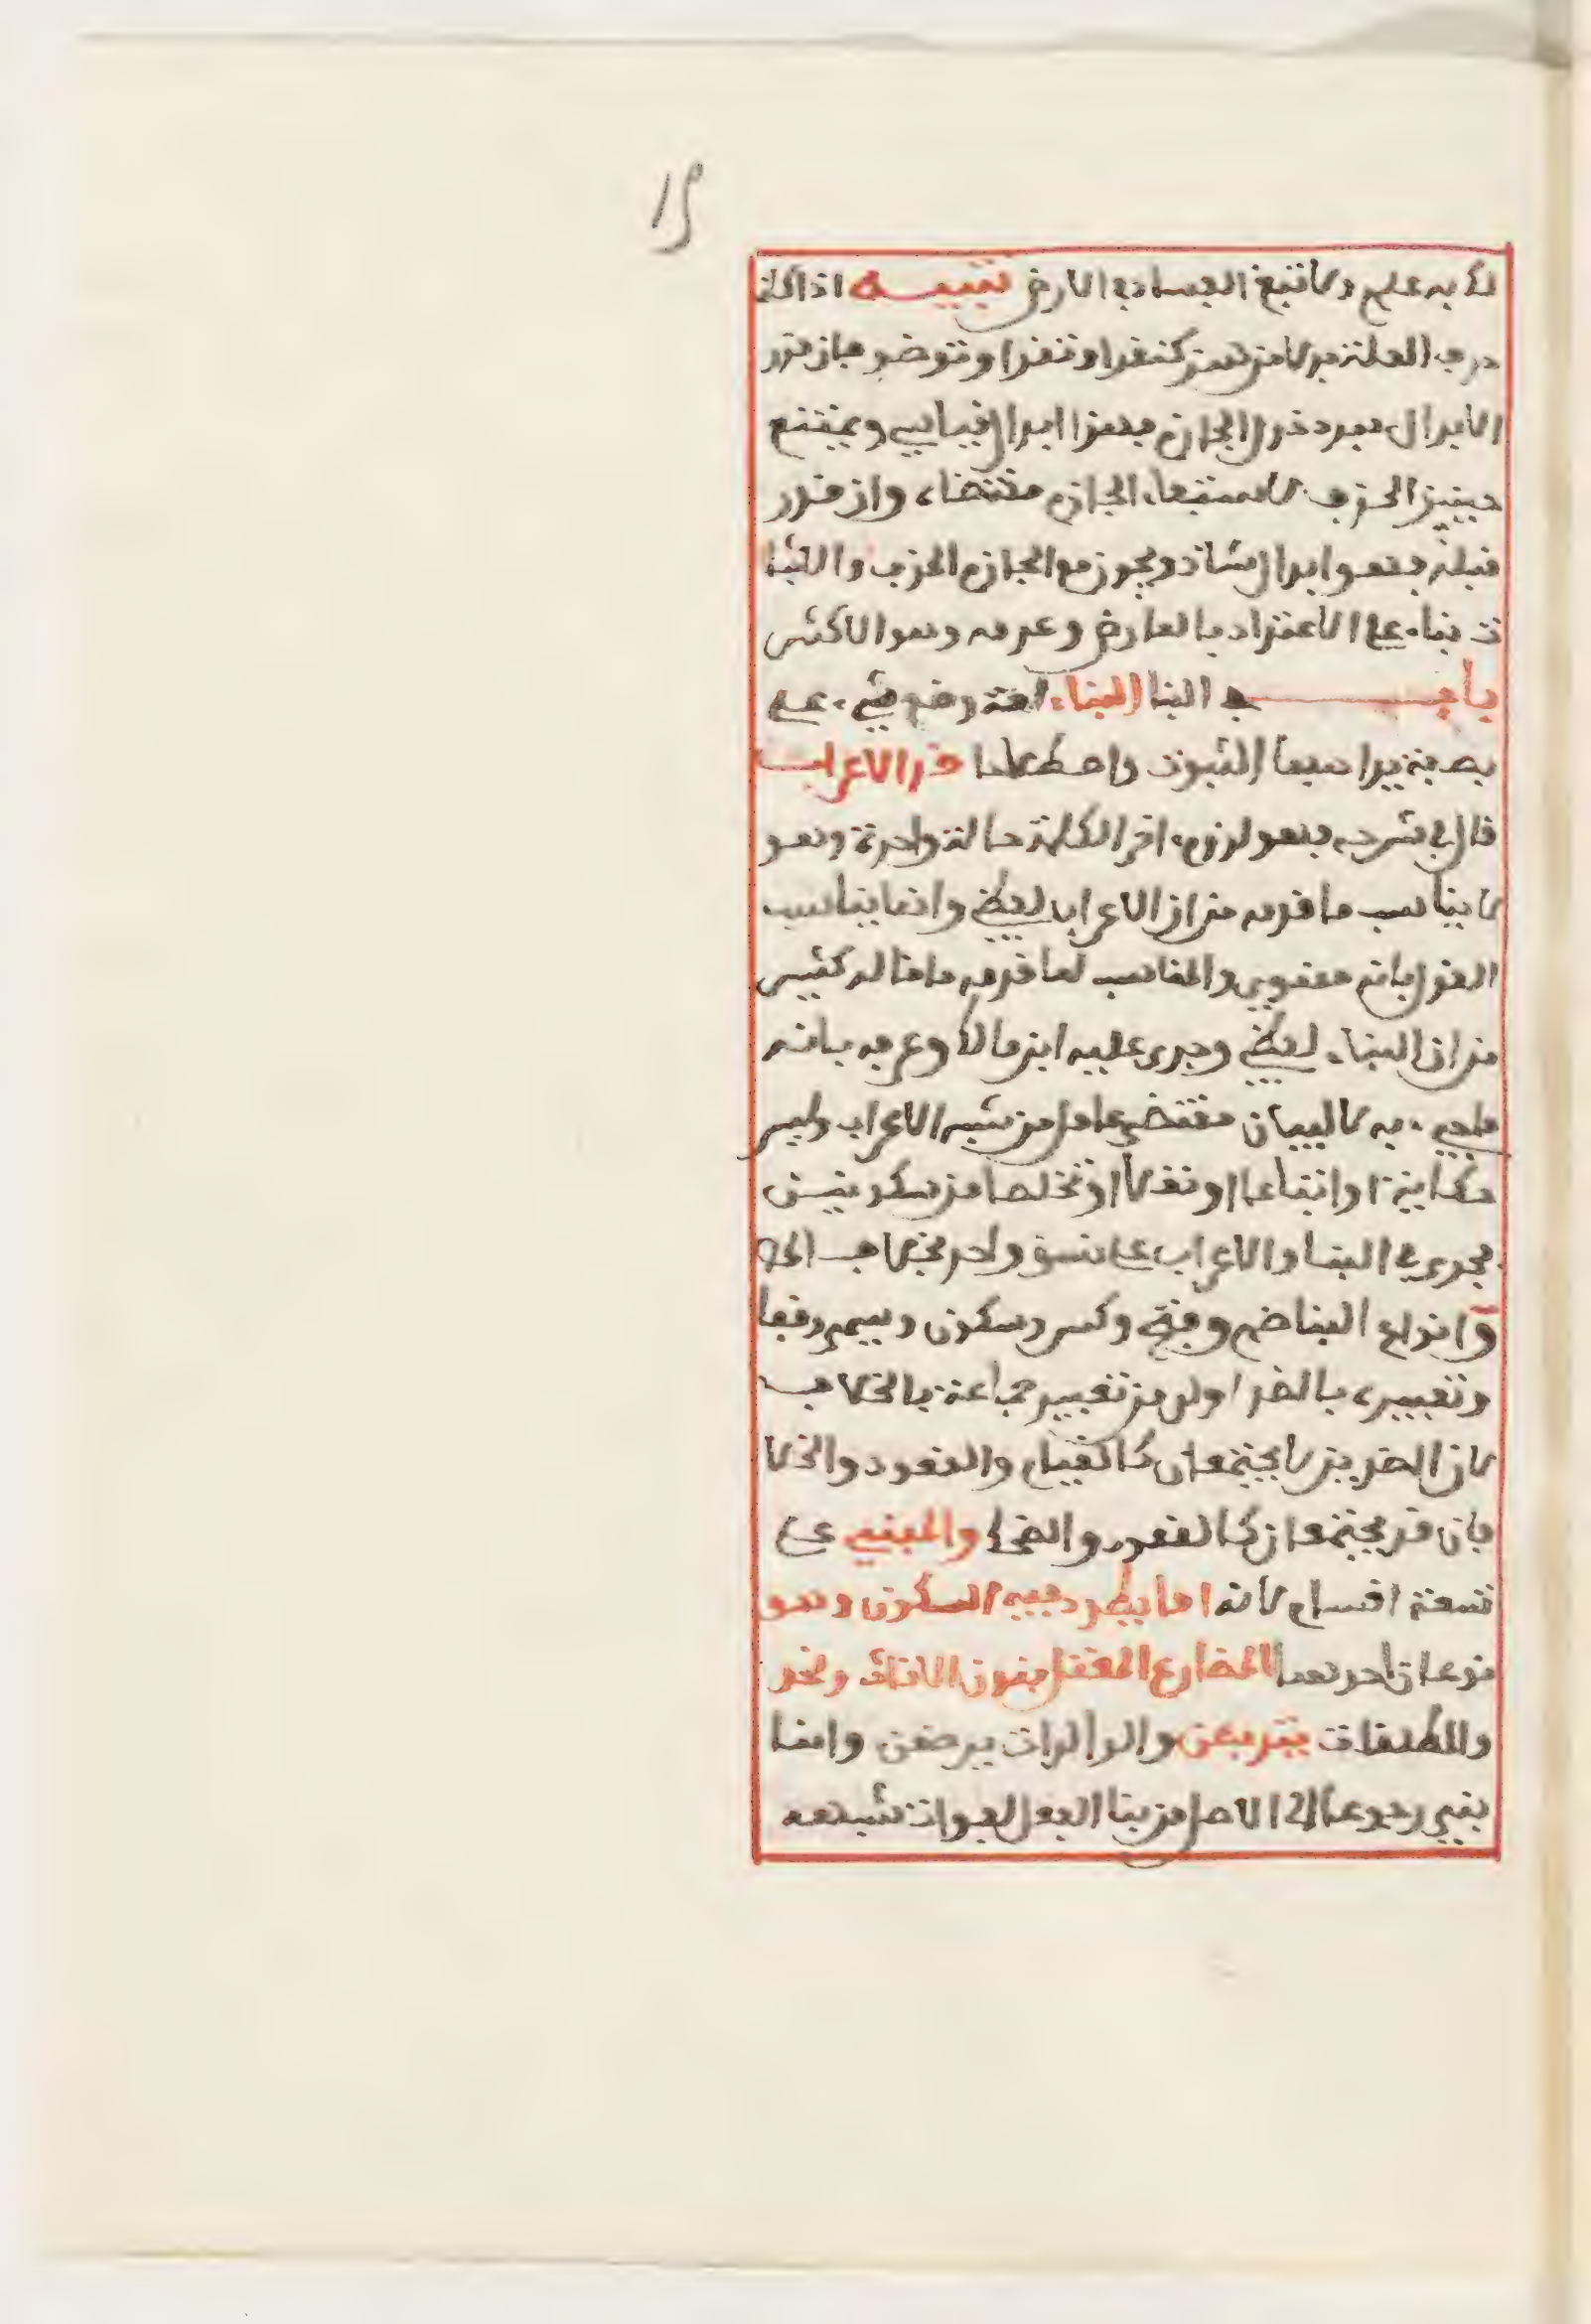 ١٩
لك به علم ولا تبغ الفساد في الارض تنبيه اذا كان
حرف العلة بدلا من همز كتقرا وتقرا وتوضو فان قدر
الابدال بعد دخول الجازم فهو ابدال قياسي ويمتنع
حينئذ الحذف لاستيفاء الجازم مقتضاه وان قدر
قبله فهو ابدال شاذ ويجوز مع الجازم الحذف والاثبا
ت بناء على الاعتداد بالعارض وعدمه وهو الاكثر
باب البنا البناء لغة وضع شيء على
بصفة يراد بها الثبوت واصطلاحا ضد الاعراب
قال في شرحه فهو لزوم اخر الكلمة حالة واحدة وهو
لا يناسب ما قدمه من ان الاعراب لفظي وانما يناسب
القول بانه معنوي والمناسب لما قدمه ما قاله كثير
من ان البناء لفظي وجرى عليه ابن مالك وعرفه بانه
ما جيء به لا لبيان مقتضى عامل من شبه الاعراب وليس
حكاية او اتباعا او نقلا او تخلصا من سكونين
فجرى في البنا والاعراب على نسق واحد بخلاف
وانواع البنا ضم وفتح وكسر وسكون ويسمى وقفا
وتعبيره بالضد اولى من تعبير جماعة بالخلاف
لان الضدين لا يجتمعان كالقيام والقعود والخلا
فان قد يجتمعان كالقعود والضحك والمبني على
تسعة اقسام لانه اما يطرد فيه السكون وهو
نوعان احدهما المضارع المتصل بنون الاناث ونحو
والمطلقات يتربصن والوالدات يرضعن وانما
بني رجوعا الى الاصل من بنا الفعل لفوات شبهه